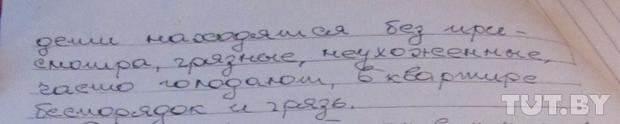 дети находятся без при-
смотра, грязные, неухоженные,
часто голодают, в квартире
беспорядок и грязь.
TUT.BY